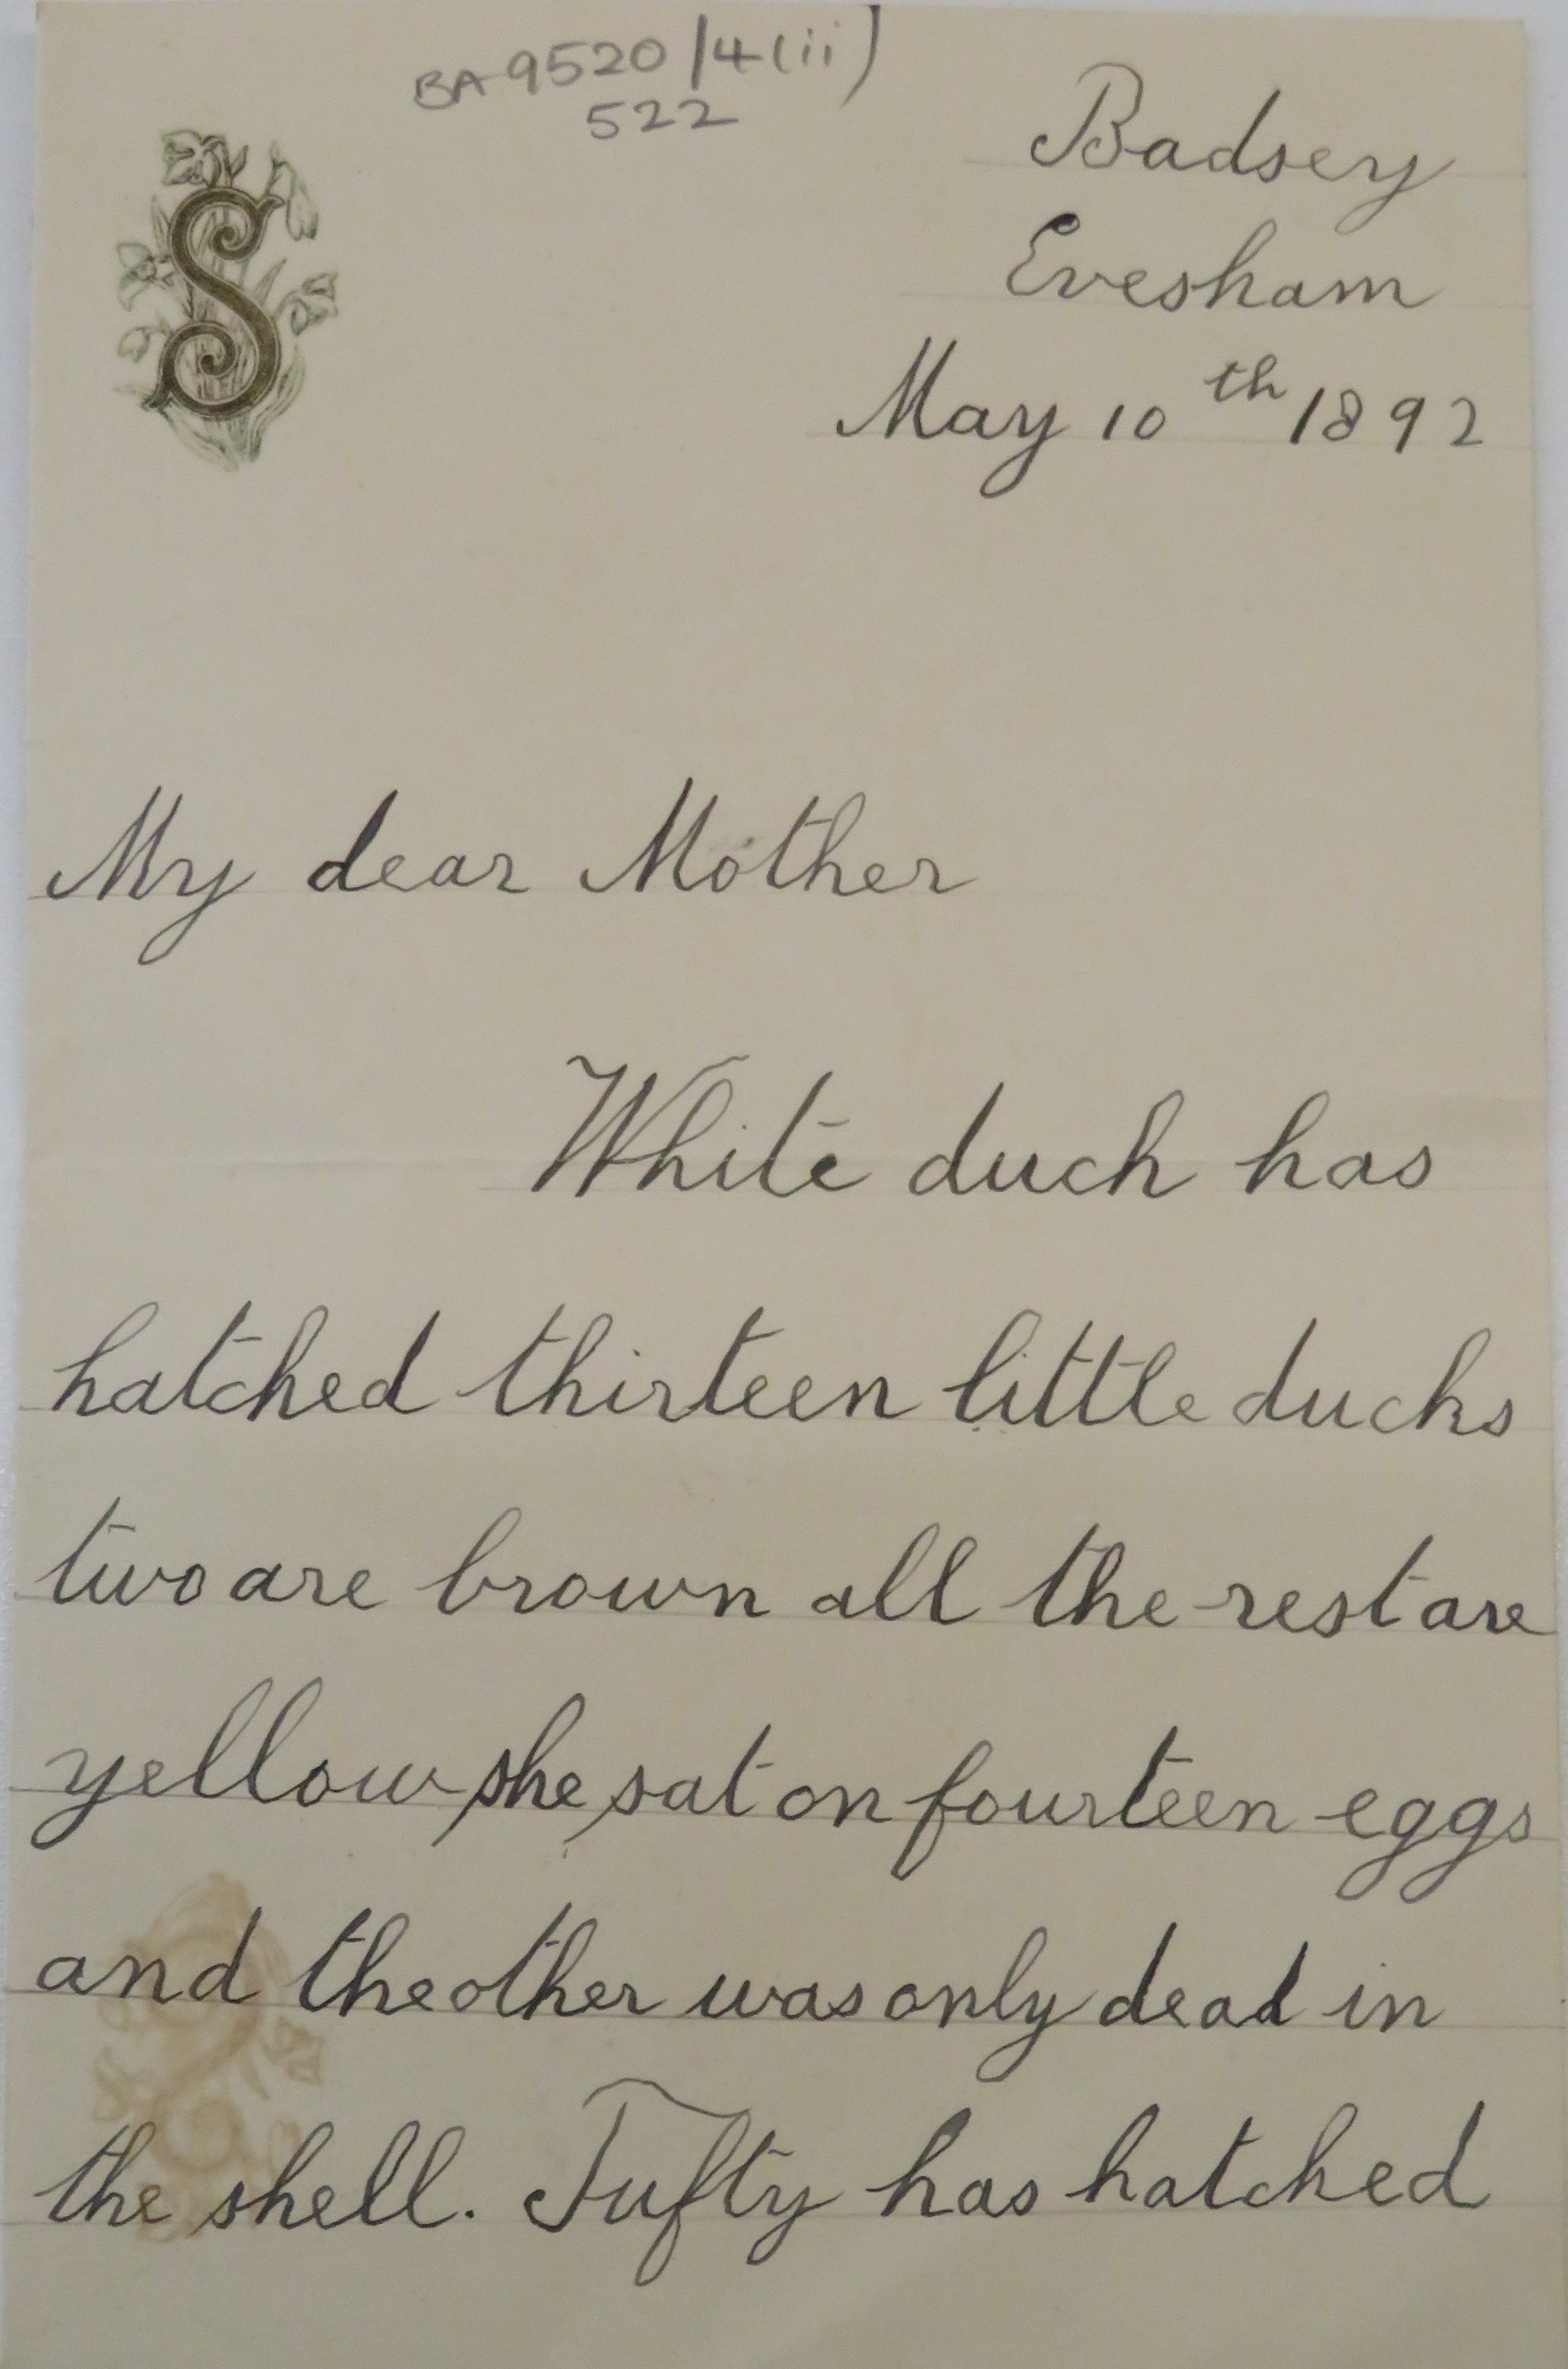 BA 9520/4(ii)
522
S
Badsey
Evesham
May 10th 1892
My dear Mother
White duck has
hatched thirteen little ducks
two are brown all the rest are
yellow she sat on fourteen eggs
and the other was only dead in
the shell. Tufty has hatched